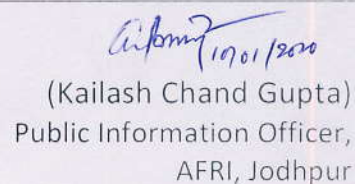 10/01/2020
(Kailash Chand Gupta)
Public Information Officer,
AFRI, Jodhpur